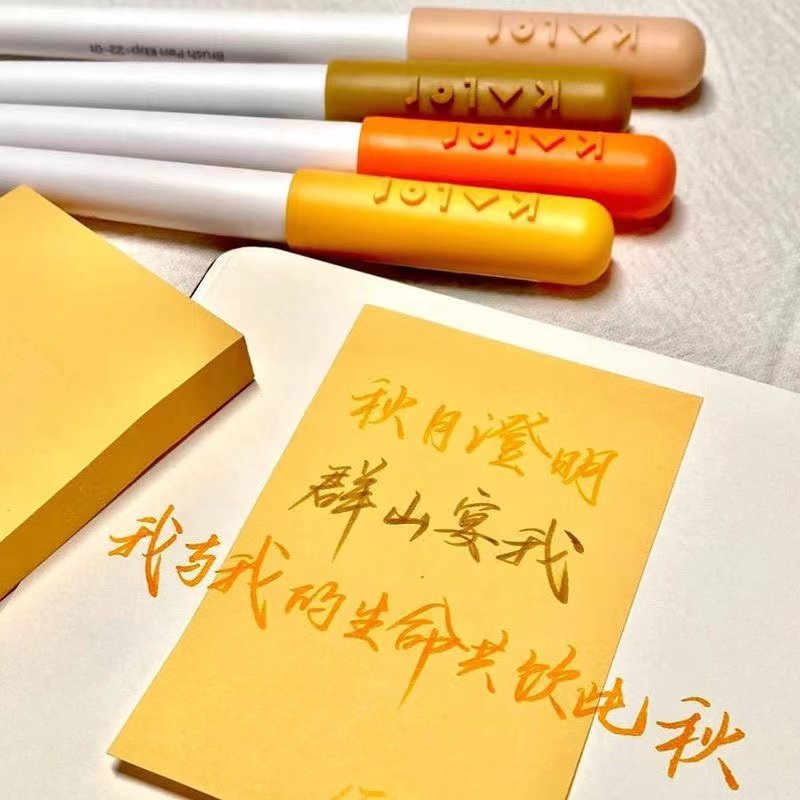 Brush Pen Kbp-22-01
KALOR
KALOR
KALOR
KALOR
秋月澄明
群山宴我
我与我的生命共饮此秋